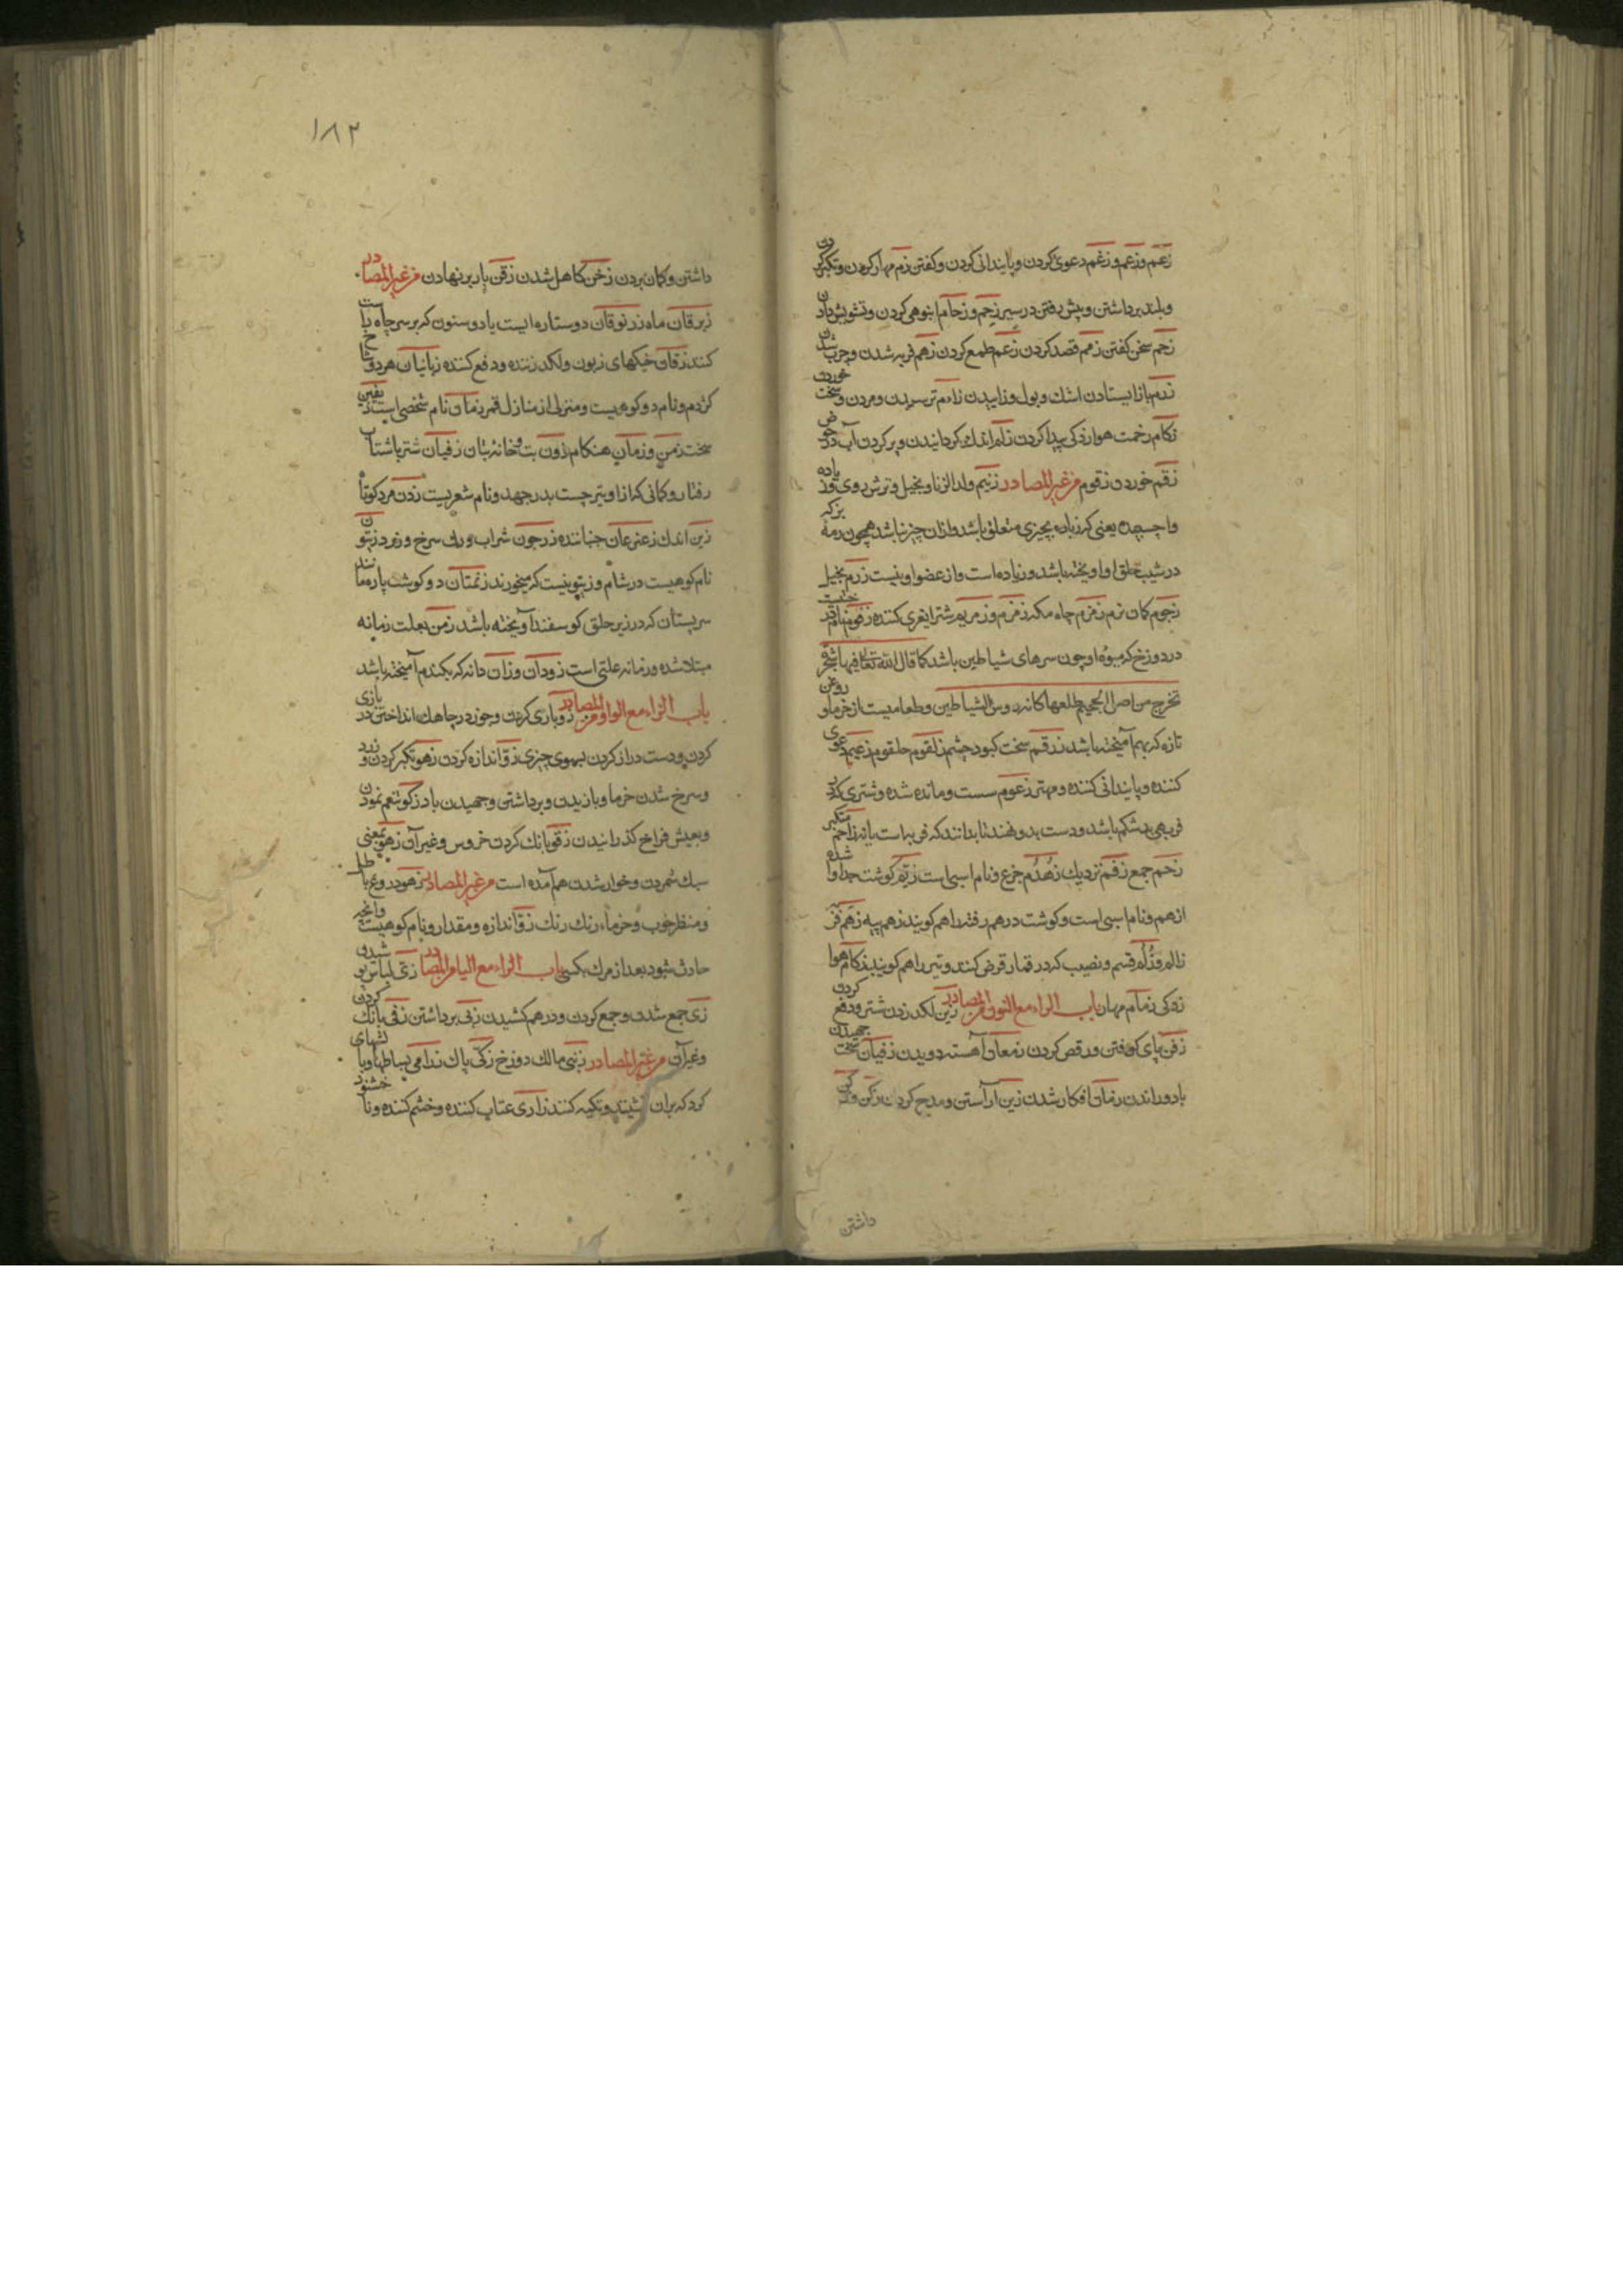 زعم وزعم وزعم دعوی کردن و پایندانی کردن و کفتن زم مهار کردن و تکبر کردن
و بلند برداشتن و پیش رفتن در سیر زحم و زحام انبوهی کردن و تشویش دادن
زجم سخن کفتن زمم قصد کردن زعم طمع کردن زهم فربه شدن و چرب شدن
زرم باز ایستادن اشك و بول و زاییدن زام ترسیدن و مردن و سخت خوردن
زکام زحمت هوا زدکی پیدا کردن اندك کردانیدن و پر کردن آب در حوض
زقم خوردن زقوم من غیر المصادر زنیم ولد الزنا و بخیل و ترش روی و زیاده
واچسپیده یعنی که زیاده بچیزی متعلق باشد و ازان چیز نباشد همچون رمهٔ بز که
در شیب حلق او اویخته باشد و زیاده است و از عضو او نیست زرم بخیل
زجوم کمان نرم زمزم چاه مکه زمزم و زمزیم شتر زقوم نام درختیست
در دوزخ که میوهٔ او چون سرهای شیاطین باشد کما قال الله تعالی فیها شجرة
تخرج من اصل الجحیم طلعها کانه رؤس الشیاطین و طعامیست از خرما و روغن
تازه که بهم آمیخته باشد زرقم سخت کبود چشم زلقوم حلقوم زعیم دعوی
کننده و پایندانی کننده و مهتر زعوم سست و مانده شده و شتری که در
فربهی بشکم باشد و دست بدو نهند تا بدانند که فربه است یا نه زامّ متکبر
زخم جمع زقم نزدیك زهدم چرغ و نام اسبی است زیم کوشت جدا وا شده
از هم و نام اسبی است و کوشت در هم رفته را هم کویند زهم پیه زهم فربه
زلم و زلم قسم و نصیب که در قمار قرض کنند و تیر را هم کویند زکام هوا
زدکی زمام مهار باب الزاء مع النون من المصادر زبن لکد زدن شتر و دفع کردن
زفن پای کوفتن و رقص کردن زمعان آهسته دویدن زفیان سخت جهیدن
باد و راندن زمان افکار شدن زین آراستن و مدیح کردن زکن
داشتن
۱۸۲
داشتن و کمان بردن زخن کاهل شدن زقن بار بر نهادن من غیر المصادر
زبرقان ماه زرنوقان دو ستاره ایست یا دو ستون که بر سر چاه باست
کنند زقان خیکهای زبون و لکد زننده و دفع کننده زبانیان هر دو شاخ
کژدم و نام دو کوهیست و منزلی از منازل قمر زمان نام شخصی است یقین
سخت زمن و زمان هنکام زون بت و خانهٔ بتان زفیان شتر باشتاب
رفتار و کمانی که از او تیر چست بدر جهد و نام شعریست زون مرد کوتاه
زین اندك زعزعان جنباننده زرجون شراب و رنك سرخ و زود زیتون
نام کوهیست در شام و زیتونیست که میخورند زنمتان دو کوشت پاره مانند
سر پستان که در زیر حلق کوسفند آویخته باشد زمن بعلت زمانه
مبتلا شده و زمانه علتی است زودان وزان دانه که بکندم آمیخته باشد
باب الزاء مع الواو من المصادر زدو بازی کردن و جوز در چاهك انداختن در بازی
کردن و دست دراز کردن بسوی چیزی زوّ اندازه کردن زهو تکبر کردن و زرد
و سرخ شدن خرما و بازیدن و برداشتن و جهیدن باد زکو تنعم نمودن
و بعیش فراخ کذرانیدن زقو بانك کردن خروس و غیر آن زهو بمعنی
سبك شمردن و خوار شدن هم آمده است من غیر المصادر زهو دروغ باطل
و منظر خوب و خرماء رنك رنك زوّ اندازه و مقدار و نام کوهیست وانچه
حادث شود بعد از مرك بکسی باب الزاء مع الیاء من المصادر
زی جمع شدن و جمع کردن و در هم کشیدن زبی برداشتن زقی بانك کردن
و غیر آن من غیر المصادر زبنی مالك دوزخ زکی پاك زرابی بساطها و بالشهای
کرد که بران نشینند و تکیه کنند زاری عتاب کننده و خشم کننده و ناخشنود